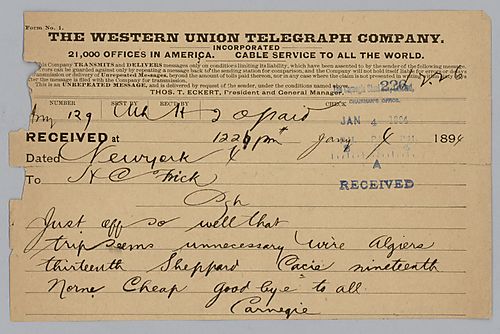 Form No. 1.
THE WESTERN UNION TELEGRAPH COMPANY.
INCORPORATED
21,000 OFFICES IN AMERICA. CABLE SERVICE TO ALL THE WORLD.
This Company TRANSMITS and DELIVERS messages only on conditions limiting its liability, which have been assented to by the sender of the following message.
Errors can be guarded against only by repeating a message back to the sending station for comparison, and the Company will not hold itself liable for errors or delays
in transmission or delivery of Unrepeated Messages, beyond the amount of tolls paid thereon, nor in any case where the claim is not presented in writing
This is an UNREPEATED MESSAGE, and is delivered by request of the sender, under the conditions named
THOS. T. ECKERT, President and General Manager.
226 226
CHAIRMAN'S OFFICE.
NUMBER SENT BY REC'D BY CHECK
129 paid
JAN 4 1894
RECEIVED at 1220 pm Jany 4 1894
A
Dated Newyork 4
RECEIVED
To H C Frick
Pgh
Just off so well that
trip seems unnecessary Wire Algiers
thirteenth Sheppard Cacie nineteenth
Norne Cheap good bye to all
Carnegie